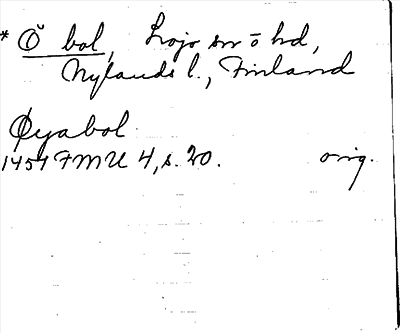 * Ŏ bol, Lojo sn o hd,
Nylands l., Finland
Øyabol
1451 FMU 4, s. 20. orig.